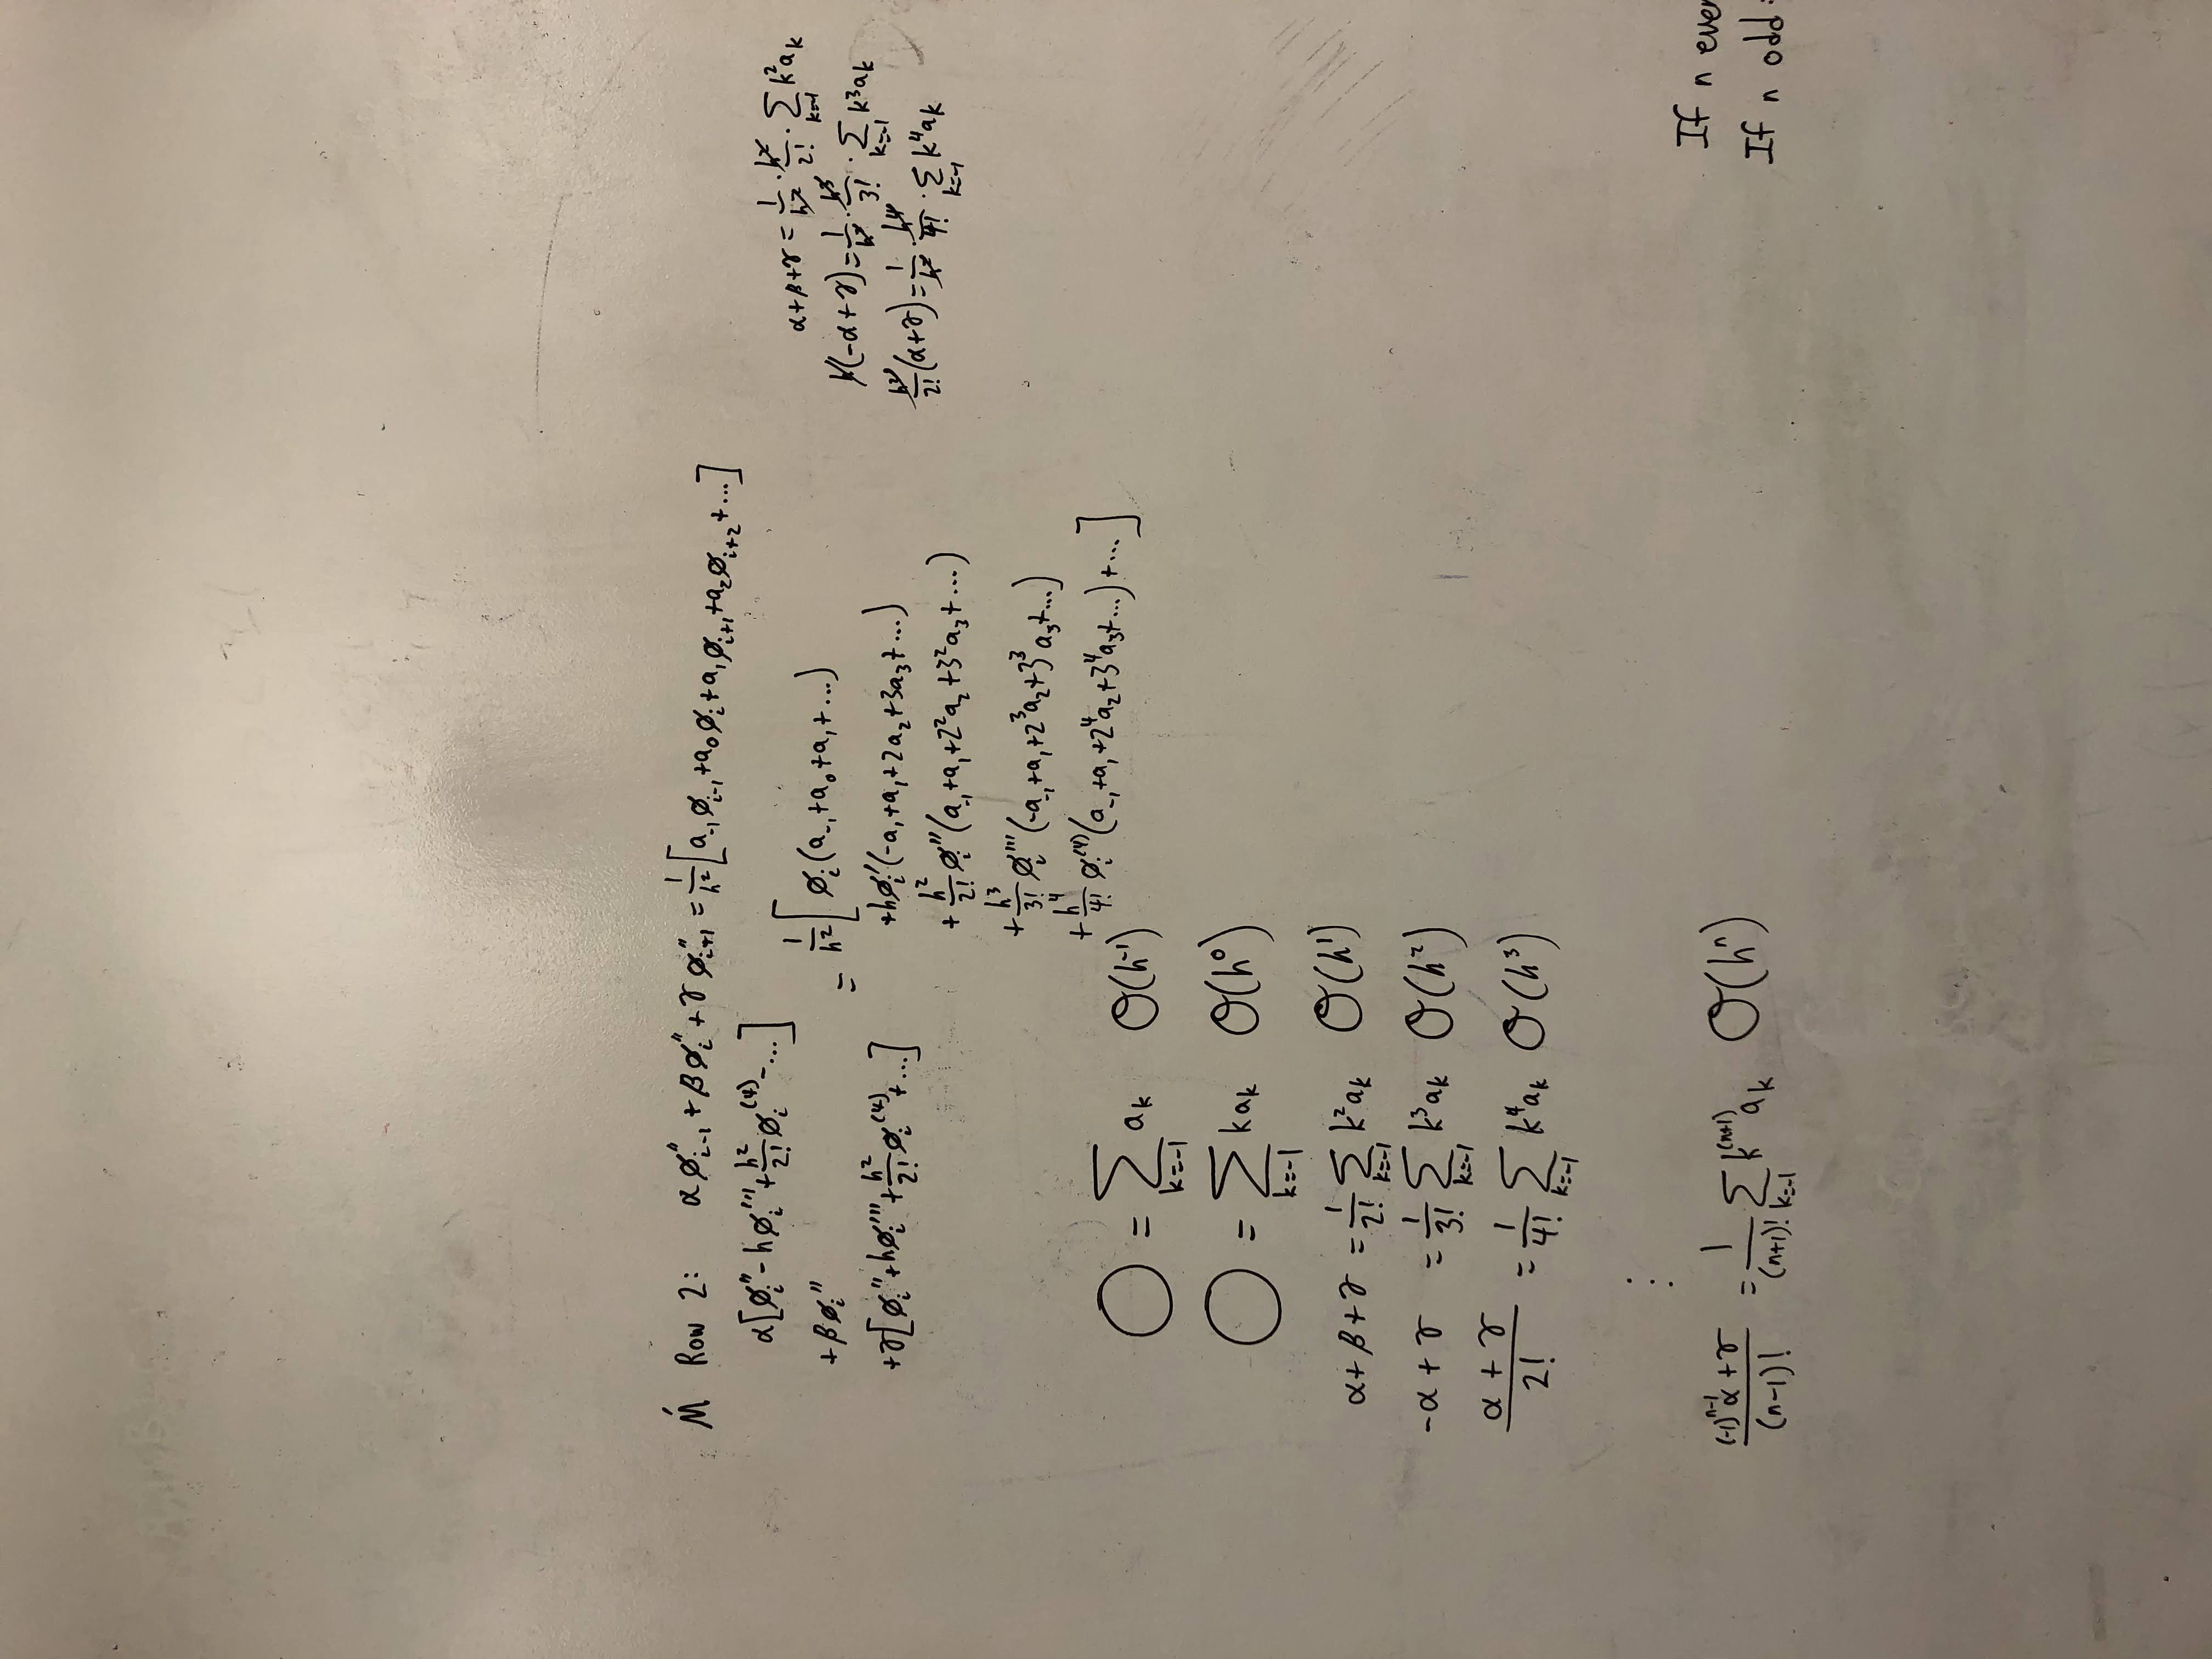 Ḿ Row 2: αϕ''ᵢ₋₁ + βϕᵢ'' + γϕ''ᵢ₊₁ = 1/h² [a₋₁ϕᵢ₋₁ + a₀ϕᵢ + a₁ϕᵢ₊₁ + a₂ϕᵢ₊₂ + ...]
α[ϕᵢ'' - hϕᵢ''' + h²/2! ϕᵢ⁽⁴⁾ - ...]
+ βϕᵢ''
+ γ[ϕᵢ'' + hϕᵢ''' + h²/2! ϕᵢ⁽⁴⁾ + ...]
= 1/h² [ϕᵢ(a₋₁ + a₀ + a₁ + ...)
+ hϕᵢ'(-a₁ + a₁ + 2a₂ + 3a₃ + ...)
+ h²/2! ϕᵢ''(a₋₁ + a₁ + 2²a₂ + 3²a₃ + ...)
+ h³/3! ϕᵢ'''(-a₋₁ + a₁ + 2³a₂ + 3³a₃ + ...)
+ h⁴/4! ϕᵢ⁽⁴⁾(a₋₁ + a₁ + 2⁴a₂ + 3⁴a₃ + ...) + ...]
α + β + γ = 1/h² · h²/2! · ∑ₖ₌₋₁ k²aₖ
h(-α + γ) = 1/h² · h³/3! · ∑ₖ₌₋₁ k³aₖ
h²/2! (α + γ) = 1/h² · h⁴/4! · ∑ₖ₌₋₁ k⁴aₖ
0 = ∑ₖ₌₋₁ aₖ O(h⁻¹)
0 = ∑ₖ₌₋₁ kaₖ O(h⁰)
α + β + γ = 1/2! ∑ₖ₌₋₁ k²aₖ O(h¹)
-α + γ = 1/3! ∑ₖ₌₋₁ k³aₖ O(h²)
(α + γ)/2! = 1/4! ∑ₖ₌₋₁ k⁴aₖ O(h³)
⋮
((-1)ⁿ⁻¹α + γ)/(n-1)! = 1/(n+1)! ∑ₖ₌₋₁ k⁽ⁿ⁺¹⁾aₖ O(hⁿ)
If n even
If n odd: